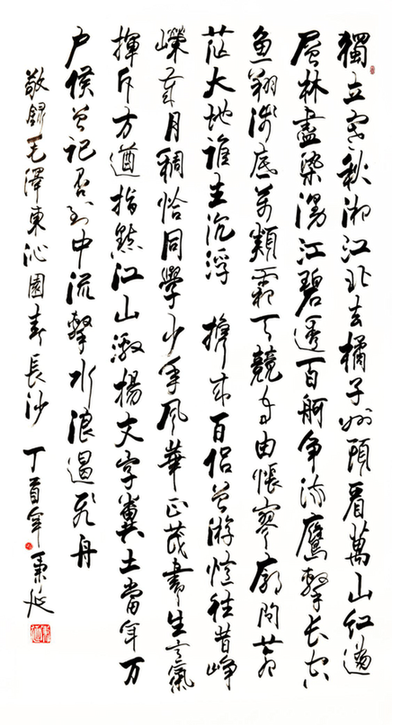 獨立寒秋湘江北去橘子洲頭看萬山红遍
層林盡染漫江碧透百舸争流鷹擊长空
鱼翔淺底萬類霜天競自由悵寥廓问蒼
茫大地誰主沉浮 攜來百侣曾游憶往昔崢
嶸歲月稠恰同學少年风華正茂書生意氣
揮斥方遒指點江山激揚文字糞土當年万
户侯曾記否到中流擊水浪遏飛舟
敬録毛澤東沁園春長沙 丁酉年秉延